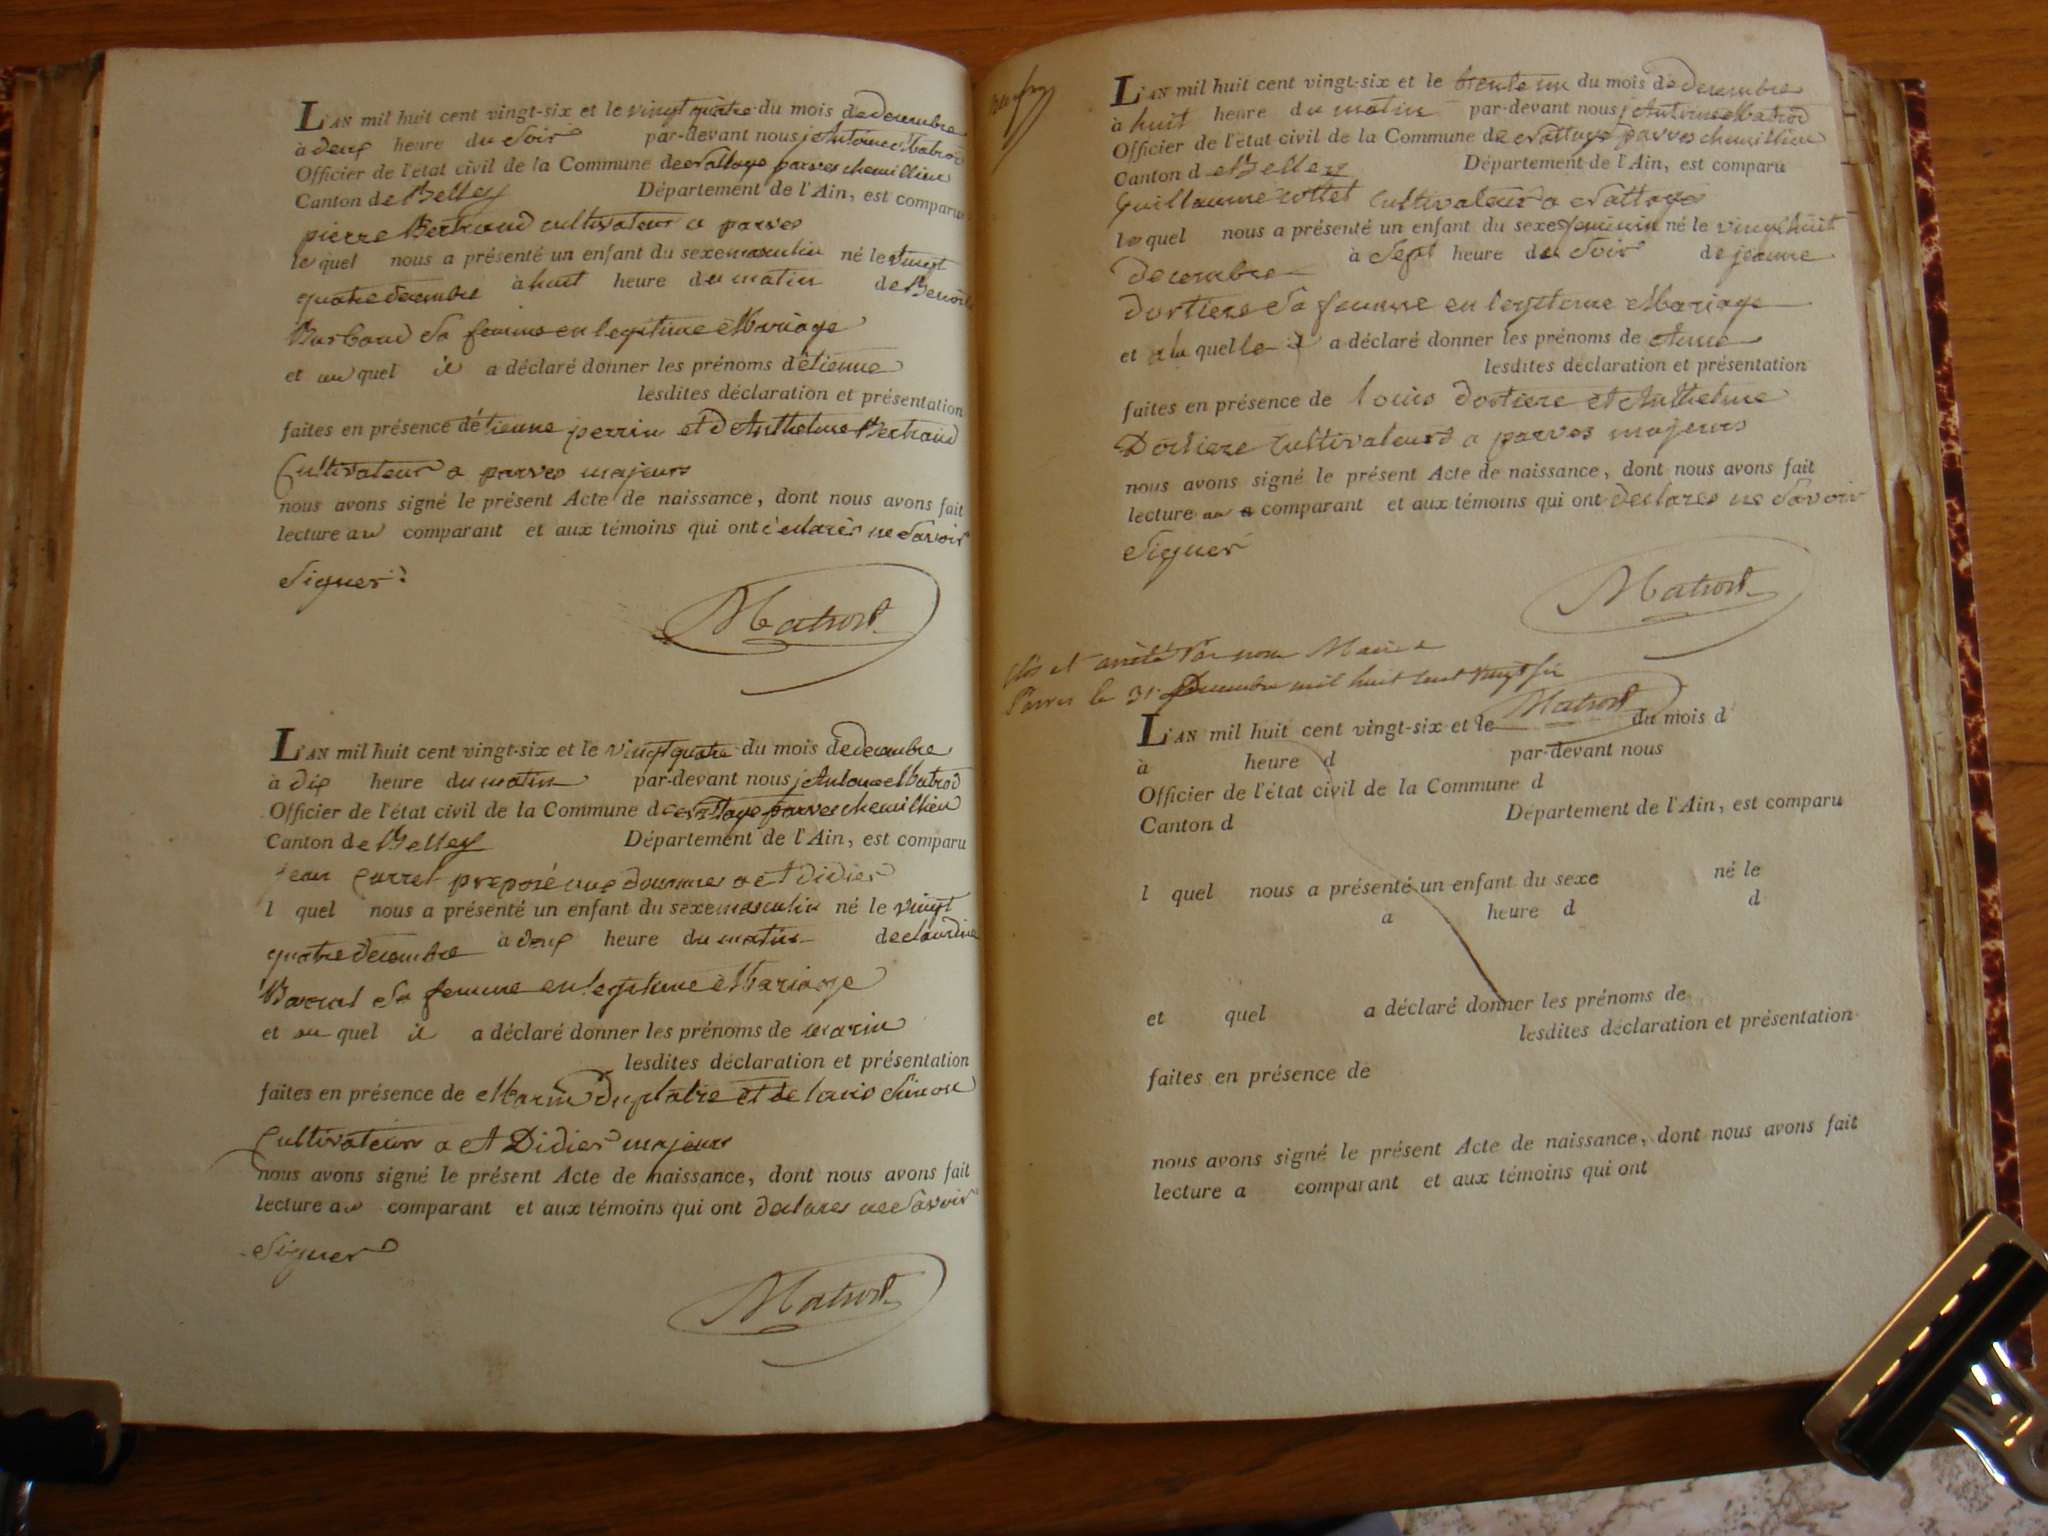 L'AN mil huit cent vingt-six et le vingt quatre du mois de decembre
à deux heure du Soir par-devant nous j Antoine Matrod
Officier de l'état civil de la Commune de Nattage parves chemillieu
Canton de Belley Département de l'Ain, est comparu
pierre Bertrand cultivateur a parves
le quel nous a présenté un enfant du sexe masculin né le vingt
quatre decembre à huit heure du matin de Benoite
Burbaud Sa femme en legitime Mariage
et au quel il a déclaré donner les prénoms d'étienne
lesdites déclaration et présentation
faites en présence d'étienne perrin et d'Anthelme Bertrand
Cultivateur a parves majeurs
nous avons signé le présent Acte de naissance, dont nous avons fait
lecture au comparant et aux témoins qui ont declarés ne Savoir
Signer
Matrod
L'AN mil huit cent vingt-six et le vingt quatre du mois de decembre
à dix heure du matin par-devant nous j Antoine Matrod
Officier de l'état civil de la Commune de Nattage parves chemillieu
Canton de Belley Département de l'Ain, est comparu
jean Carrel preposé aux douannes a St didier
l quel nous a présenté un enfant du sexe masculin né le vingt
quatre decembre à deux heure du matin de claudine
Barral Sa femme en legitime Mariage
et au quel il a déclaré donner les prénoms de marin
lesdites déclaration et présentation
faites en présence de Marin Duplatre et de louis Simon
Cultivateurs a St Didier majeurs
nous avons signé le présent Acte de naissance, dont nous avons fait
lecture au comparant et aux témoins qui ont declares ne Savoir
Signer
Matrod
L'AN mil huit cent vingt-six et le trente un du mois de decembre
à huit heure du matin par-devant nous j Antoine Matrod
Officier de l'état civil de la Commune de Nattage parves chemillieu
Canton de Belley Département de l'Ain, est comparu
Guillaume Cottet Cultivateur a Nattage
le quel nous a présenté un enfant du sexe feminin né le vingt huit
decembre à Sept heure du Soir de jeanne
dortiere Sa femme en legitime Mariage
et a la quelle il a déclaré donner les prénoms de Anne
lesdites déclaration et présentation
faites en présence de louis dortiere et Anthelme
Dortiere Cultivateurs a parves majeurs
nous avons signé le présent Acte de naissance, dont nous avons fait
lecture au comparant et aux témoins qui ont declares ne Savoir
Signer
Matrod
Clos et arrêté Par nous Maire a
Parves le 31 Decembre mil huit cent vingt six
Matrod
L'AN mil huit cent vingt-six et le du mois d
à heure d par-devant nous
Officier de l'état civil de la Commune d
Canton d Département de l'Ain, est comparu
l quel nous a présenté un enfant du sexe né le
a heure d d
et quel a déclaré donner les prénoms de
lesdites déclaration et présentation
faites en présence de
nous avons signé le présent Acte de naissance, dont nous avons fait
lecture a comparant et aux témoins qui ont